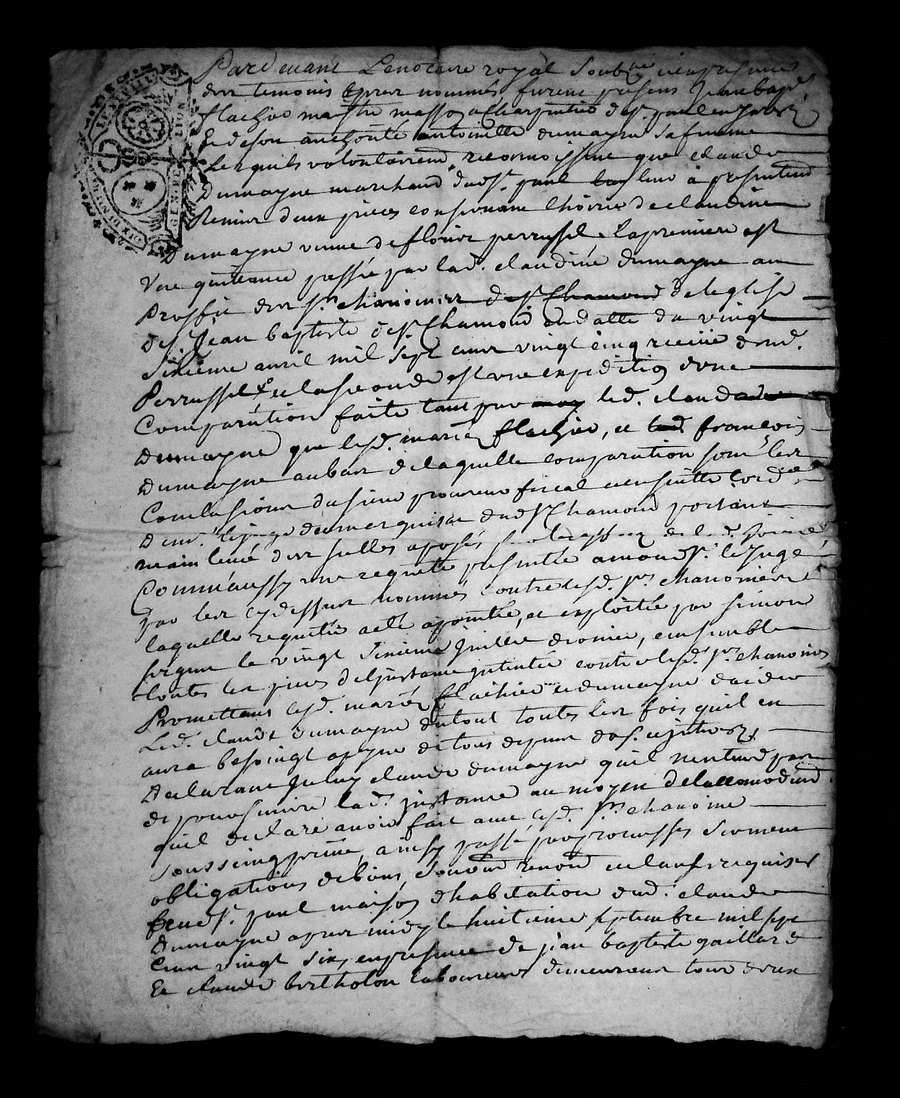 GEN. DE LYON
Pardevant Lenotere royal Soubné et enpresence
der temoins apres nommés furent presens Jean bapt.
flachier maistre masson et Charpentier de st. paul en Jarez
Et de son authorite antoinette dumayne sa femme
Lesquels volontairemt. reconnoissent que claude
Dumayne marchand dud st. paul leur a presentemt
Remis deux pieces consernant l'hoirie de claudine
Dumayne veuve de flouris perrussel La premiere est
Une quittance passée par lad. claudine dumayne au
Proffit der srs. chanoines de st. Chamond de leglise
de st. Jean baptiste de st. Chamond en datte du vingt
Sixieme avril mil sept cent vingt cinq receüe
Perrussel et la seconde est une expedition dune
Comparution faitte tant par led. claude
Dumayne que lesd. mariés flachier, et led. francois
Dumayne au bas de laquelle comparution sont les
Conclusions du sieur procureur fiscal et ensuitte lord.
de mr. le juge du marquisat dud st Chamond portant
main levée der scellés aposés
Comme aussy une requette presentée a mond sr. le Juge
par les cy dessus nommés contre lesd. srs. chanoines
laquelle requette a eté apointée, et exploitée par simon
le vingt sixieme Juillet dernier, ensemble
toutes les pieces de linstance intentée contre lesd. srs. chanoines
Promettant lesd. mariés flachier et dumayne daider
Led. claude dumayne du tout toutes les fois quil en
aura besoing a peyne de tous depens
Declarant Iceluy claude dumayne quil nentend pas
de poursuivre lad. instance au moyen de
quil declare avoir fait avec lesd. srs. chanoines
sous seing privé, ainsy passé par promesses serment
obligations de biens renon. et clauses requises
fait a st. paul maison dhabitation dud. claude
Dumayne apres midy le huitieme septembre mil sept
Cent vingt six, en presence de jean baptiste gaillard
Et claude bertholon laboureur demeurant tous deux